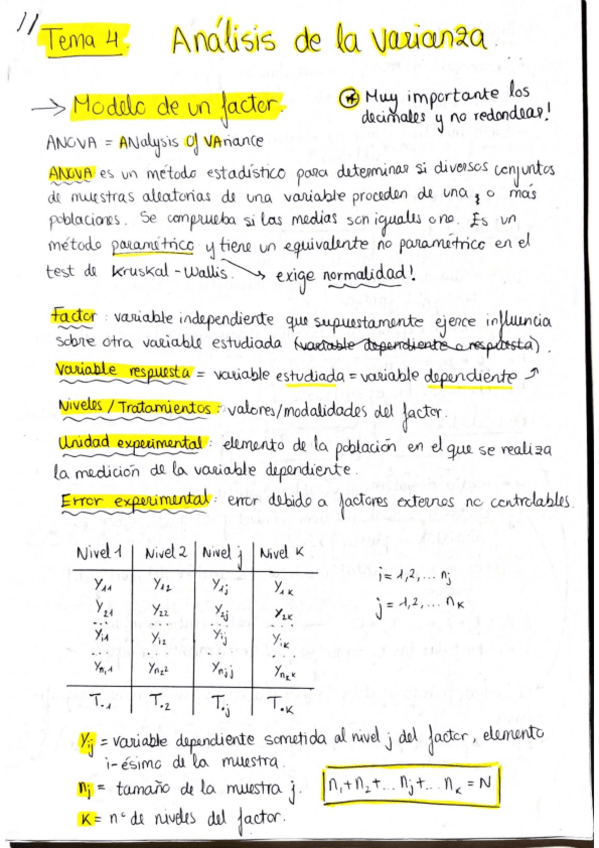 11
Tema 4. Análisis de la varianza.
→ Modelo de un factor. * Muy importante los
decimales y no redondear!
ANOVA = ANalysis Of VAriance
ANOVA es un método estadístico para determinar si diversos conjuntos
de muestras aleatorias de una variable proceden de una, o más
poblaciones. Se comprueba si las medias son iguales o no. Es un
método paramétrico y tiene un equivalente no paramétrico en el
test de Kruskal-Wallis. → exige normalidad!
Factor: variable independiente que supuestamente ejerce influencia
sobre otra variable estudiada (variable dependiente o respuesta).
Variable respuesta = variable estudiada = variable dependiente
Niveles / Tratamientos: valores/modalidades del factor.
Unidad experimental: elemento de la población en el que se realiza
la medición de la variable dependiente.
Error experimental: error debido a factores externos no controlables.
Nivel 1 | Nivel 2 | Nivel j | Nivel K
Y₁₁ | Y₁₂ | Y₁ⱼ | Y₁K
Y₂₁ | Y₂₂ | Y₂ⱼ | Y₂K
... | ... | ... | ...
Yᵢ₁ | Yᵢ₂ | Yᵢⱼ | YᵢK
... | ... | ... | ...
Yn₁1 | Yn₂2 | Ynⱼj | YnₖK
T.₁ | T.₂ | T.ⱼ | T.K
i = 1,2,... nⱼ
j = 1,2,... nK
Yᵢⱼ = variable dependiente sometida al nivel j del factor, elemento
i-ésimo de la muestra.
nⱼ = tamaño de la muestra j. n₁+n₂+... nⱼ+... nₖ = N
K = nº de niveles del factor.